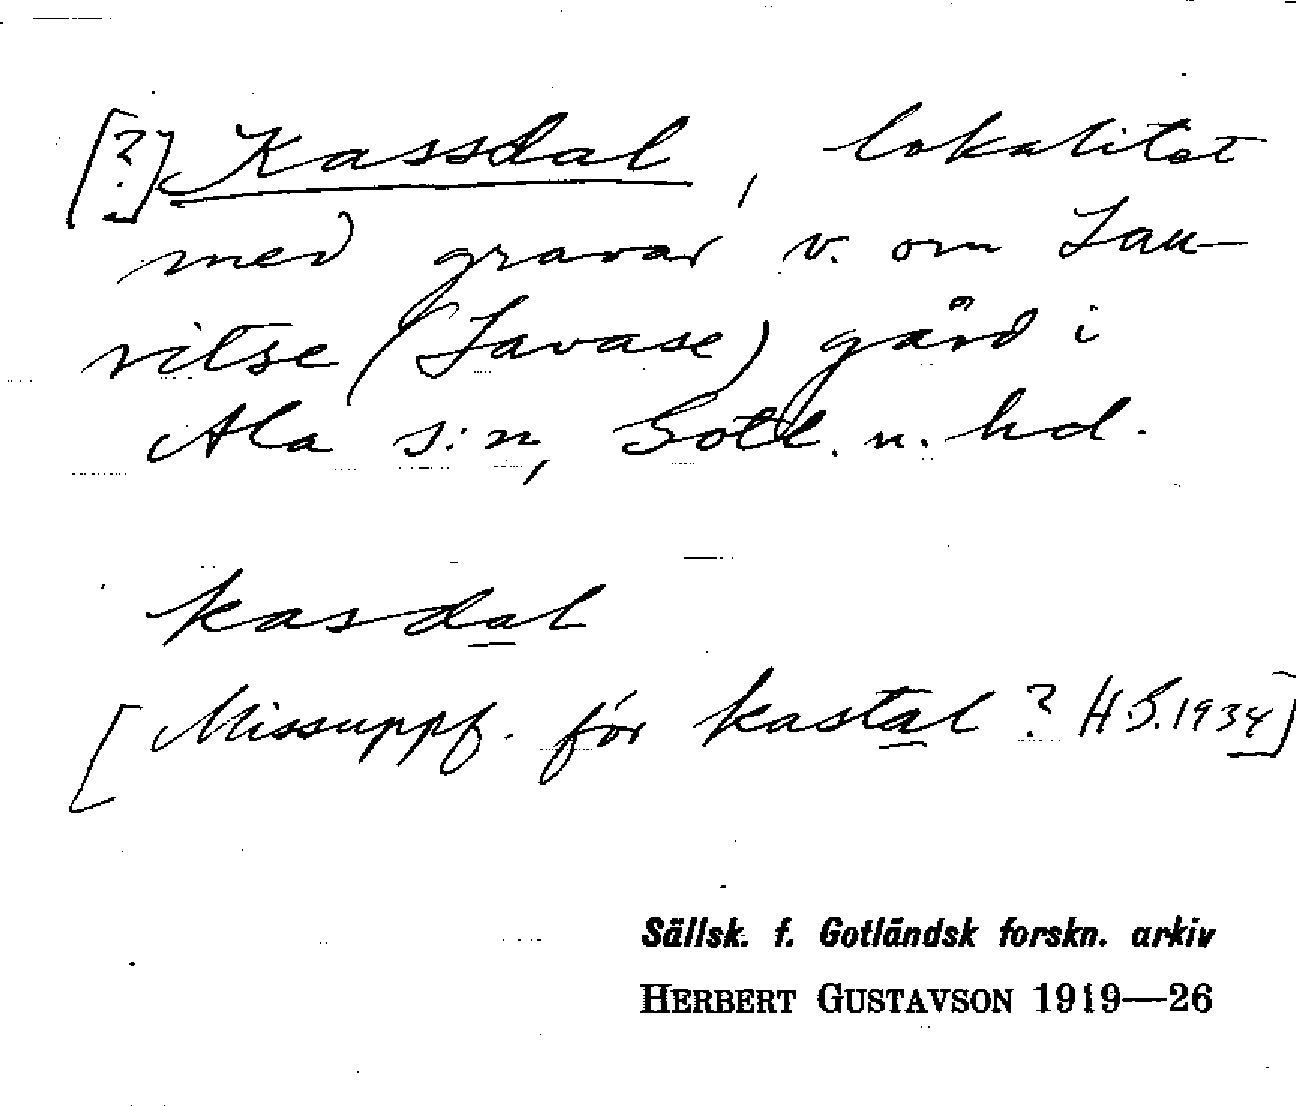 [?] Kassdal, lokalitet
med gravar v. om Lau-
ritse (Lavase) gård i
Ala s:n, Gotl. n. hd.
kasdal
[Missuppf. för kastal? H.G. 1934]
Sällsk. f. Gotländsk forskn. arkiv
HERBERT GUSTAVSON 1919—26